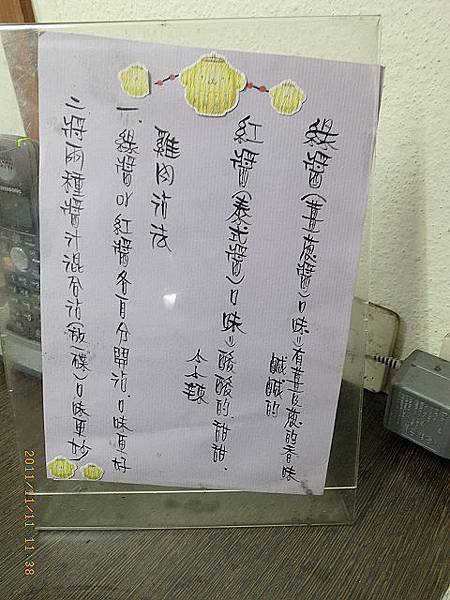 綠醬(薑蔥醬)口味=有薑及蔥的香味
鹹鹹的
紅醬(泰式醬)口味=酸酸的.甜甜.
小小辣
雞肉沾法
一.綠醬or紅醬各自分開沾.口味更好
二.將兩種醬汁混合沾(放一碟)口味更妙
Panasonic
2011/11/11 11:38